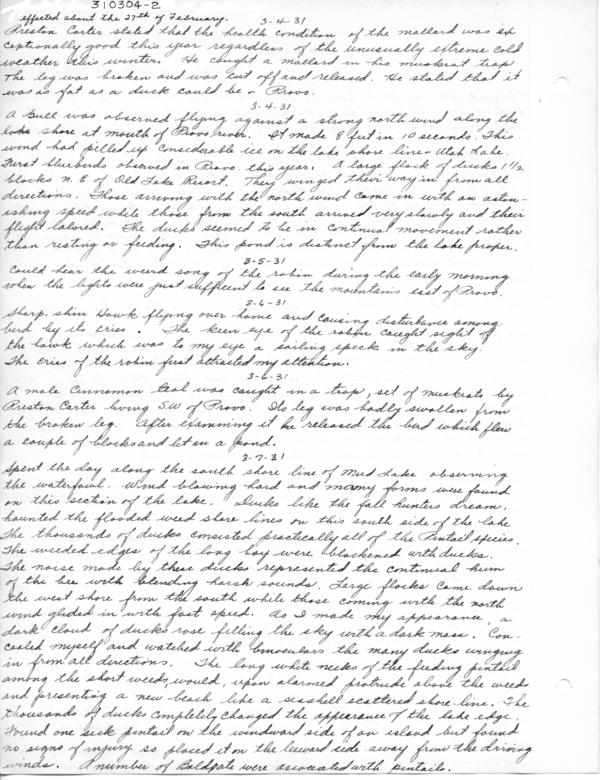 310304-2
effected about the 27th of February.
3-4-31
Preston Carter stated that the health condition of the mallard was ex
ceptionally good this year regardless of the unusually extreme cold
weather this winter. He caught a mallard in his muskrat trap
The leg was broken and was cut off and released. He stated that it
was as fat as a duck could be - Provo.
3-4-31
A Gull was observed flying against a strong north wind along the
lake shore at mouth of Provo river. It made 8 feet in 10 seconds. This
wind had pilled up considerable ice on the lake shore line - Utah Lake.
First bluebirds observed in Provo this year. A large flock of ducks 1 1/2
blocks N.E of Old Lake Resort. They winged their way in from all
directions. Those arriving with the north wind came in with an aston-
ishing speed while those from the south arrived very slowly and their
flight labored. The ducks seemed to be in continual movement rather
than resting or feeding. This pond is distinct from the lake proper.
3-5-31
Could hear the weird song of the robin during the early morning
when the lights were just sufficent to see the mountains east of Provo.
3-6-31
Sharp-shin Hawk flying over home and causing disturbance among
bird by its cries. The keen eye of the robin caught sight of
the hawk which was to my eye a sailing speck in the sky.
The cries of the robin first attracted my attention.
3-6-31
A male Cinnamon Teal was caught in a trap, set of muskrats by
Preston Carter living S.W of Provo. Its leg was badly swollen from
the broken leg. After examining it he released the bird which flew
a couple of blocks and lit in a pond.
3-7-31
Spent the day along the south shore line of Mud Lake observing
the waterfowl. Wind blowing hard and many forms were found
on this section of the lake. Ducks like the fall hunters dream,
haunted the flooded weed shore lines on this south side of the lake
The thousands of ducks consisted practically all of the Pintail species.
The weeded edges of the long bay were blackened with ducks.
The noise made by these ducks represented the continual hum
of the bee with blending harsh sounds. Large flocks came down
the west shore from the south while those coming with the north
wind glided in with fast speed. As I made my appearance, a
dark cloud of ducks rose filling the sky with a dark mass. Con-
cealed myself and watched with binoculars the many ducks winging
in from all directions. The long white necks of the feeding pintail
among the short weeds, would, upon alarmed protrude above the weeds
and presenting a new beach like a seashell scattered shore-line. The
thousands of ducks completely changed the appearance of the lake edge.
Found one sick pintail on the windward side of an island but found
no signs of injury so placed it on the leeward side away from the driving
winds. A number of Baldpate were associated with pintails.